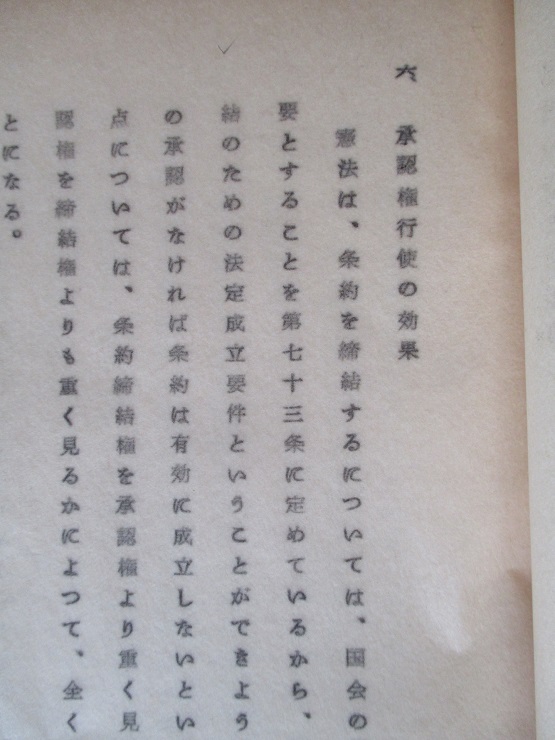 六、承認権行使の効果
憲法は、条約を締結するについては、国会の
要とすることを第七十三条に定めているから、
結のための法定成立要件ということができよう
の承認がなければ条約は有効に成立しないとい
点については、条約締結権を承認権より重く見
認権を締結権よりも重く見るかによつて、全く
とになる。